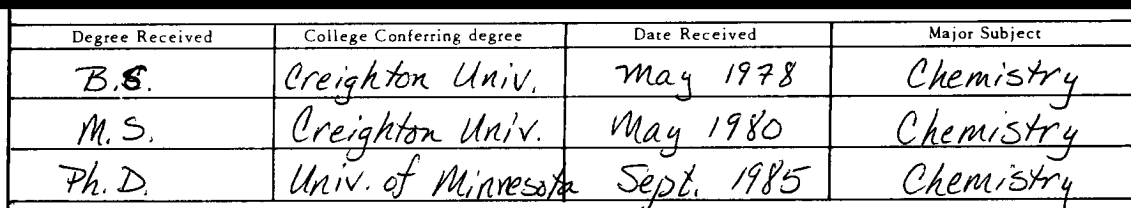 Degree Received College Conferring degree Date Received Major Subject
B.S. Creighton Univ. May 1978 Chemistry
M.S. Creighton Univ. May 1980 Chemistry
Ph.D. Univ. of Minnesota Sept. 1985 Chemistry